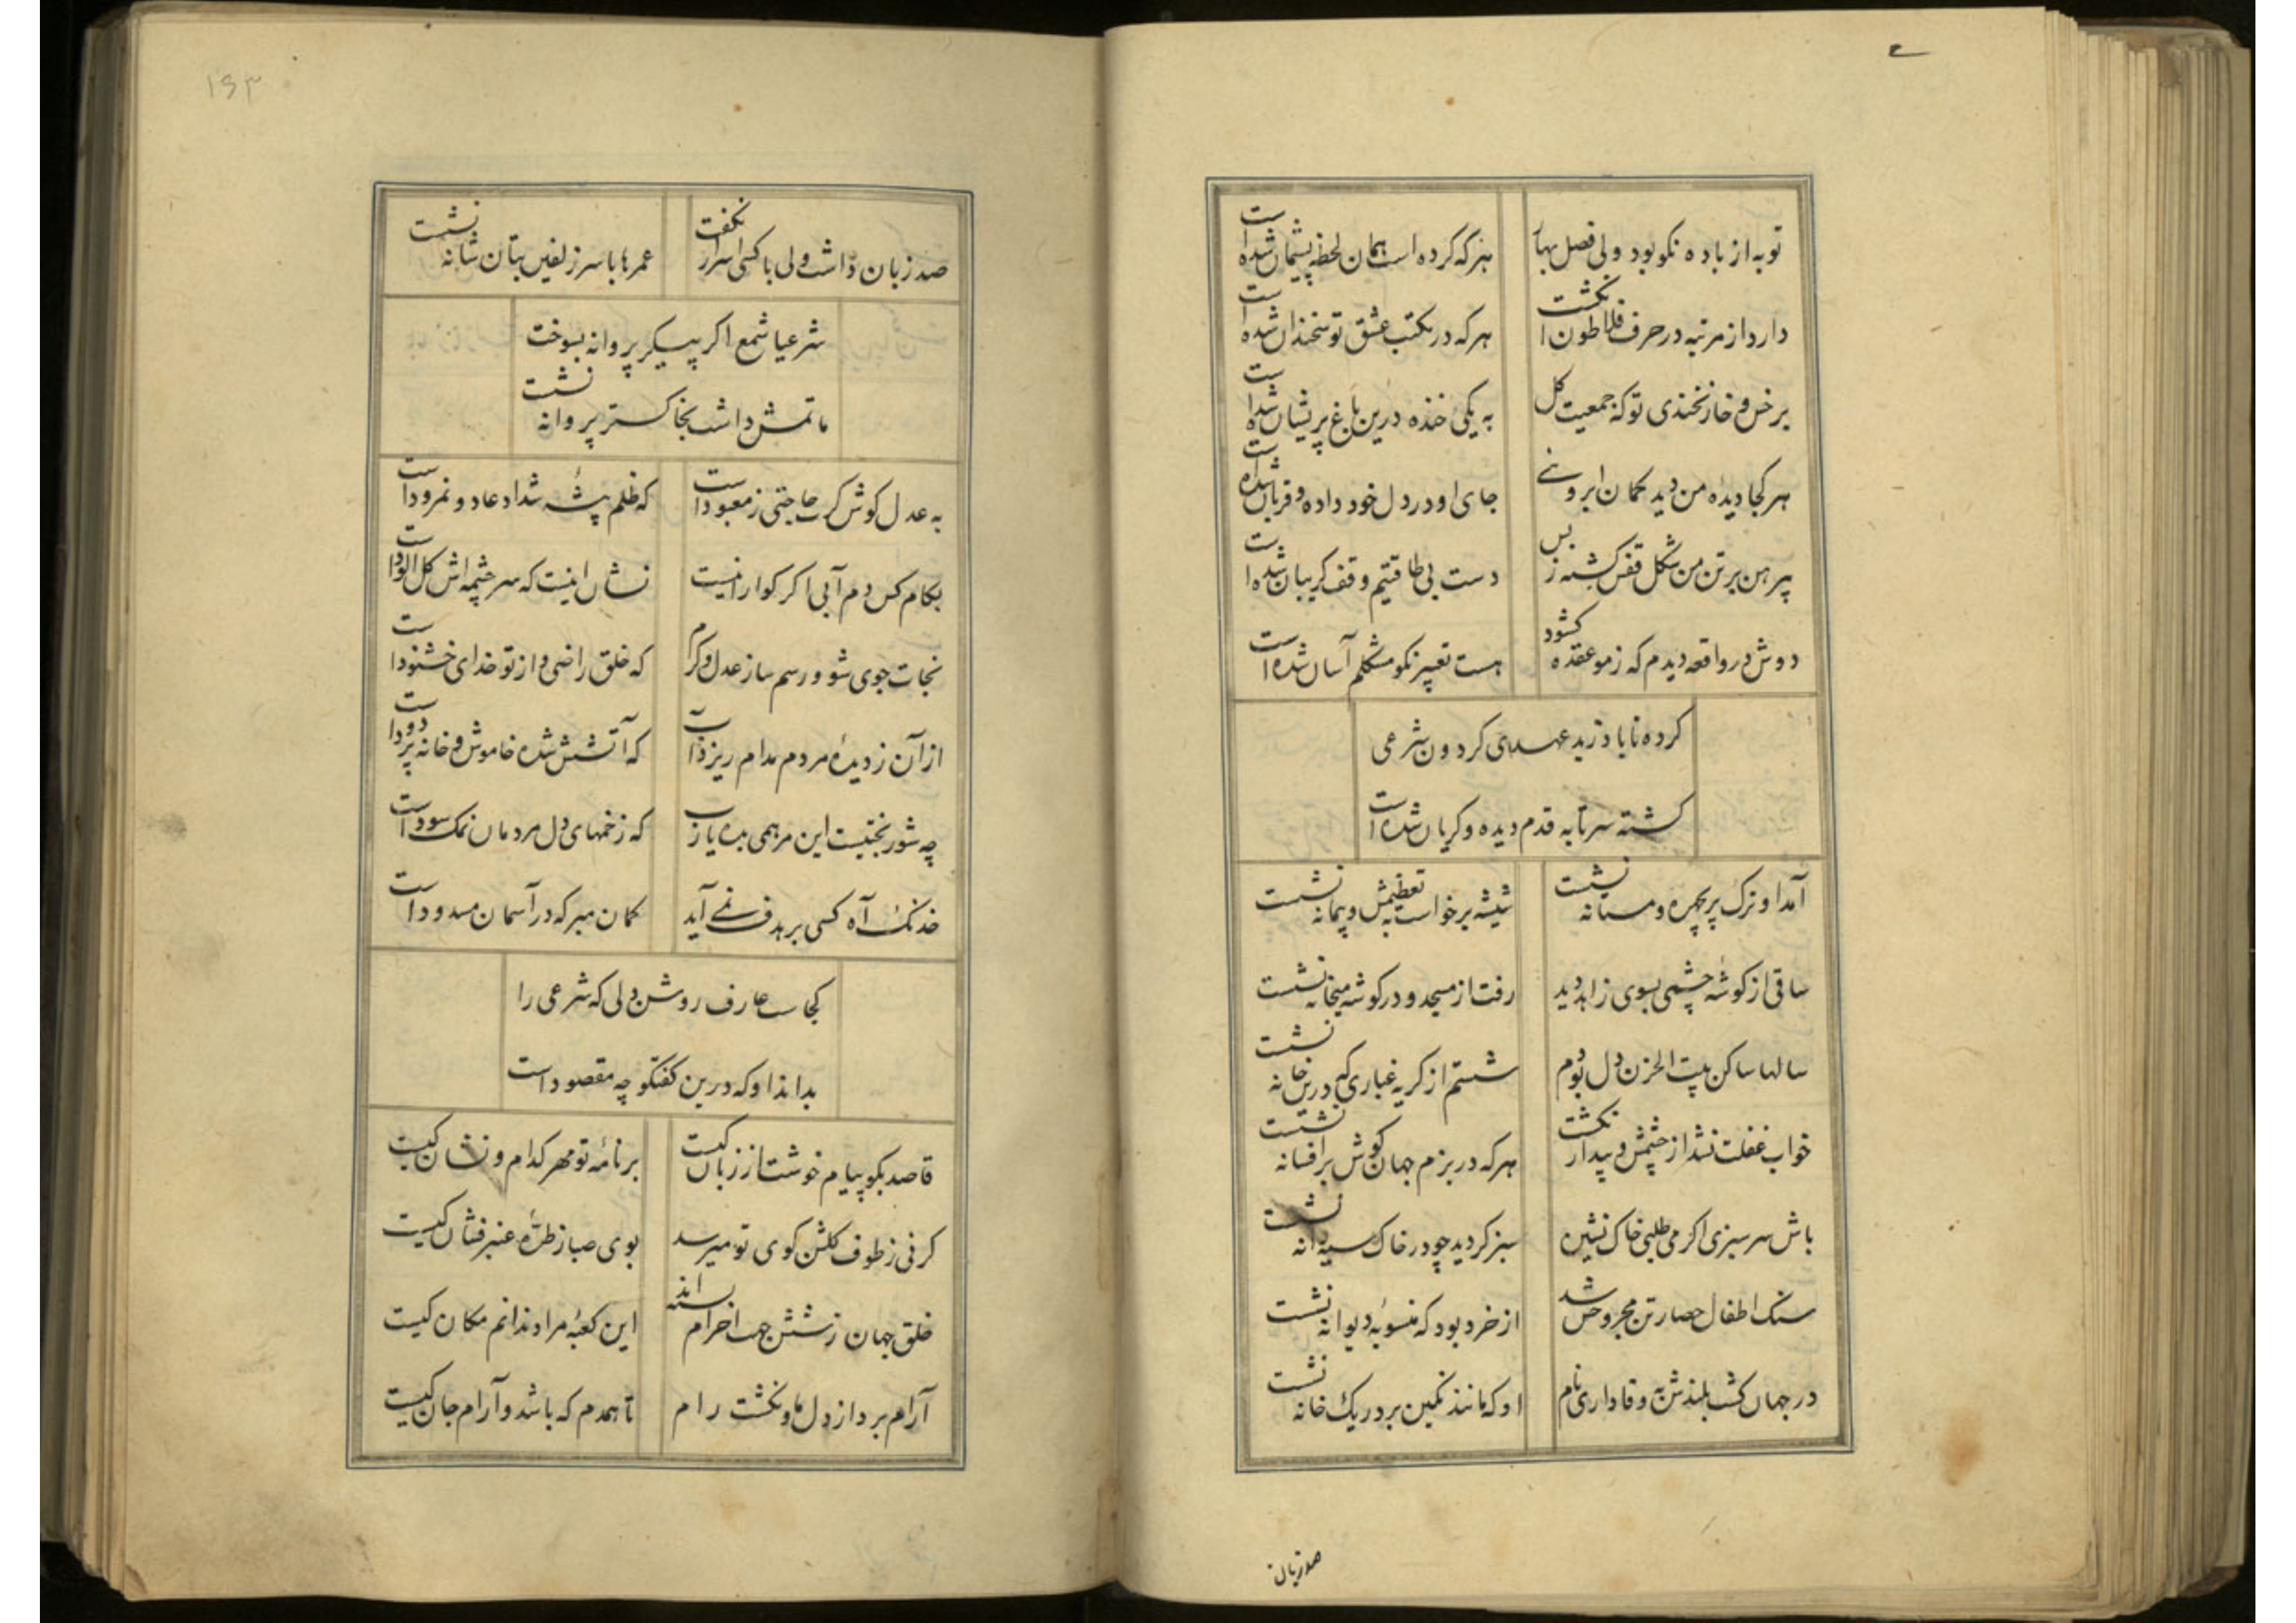 توبه از باده نکو بود ولی فصل بهار هر که کرده است همان لحظه پشیمان شده است
دارد از مرتبه در حرف فلاطون انکشت هر که در مکتب عشق تو سخندان شده است
بر خس و خار نخندی تو که جمعیت کل به یکی خنده درین باغ پریشان شده است
هر کجا دیده من دید کمان ابرویی جای او در دل خود داده و قربان شده است
پیرهن بر تن من شکل قفس کشته ز بس دست بی طاقتیم وقف کریبان شده است
دوش در واقعه دیدم که ز مو عقده کشود هست تعبیر نکو مشکلم آسان شده است
کرده تا یاد ز بد عهدی کردون شرعی
کشته سر تا به قدم دیده و کریان شده است
آمد او ترک پریچهره و مستانه نشست شیشه برخواست به تعظیمش و پیمانه نشست
ساقی از کوشه چشمی بسوی زاهد دید رفت از مسجد و در کوشه میخانه نشست
سالها ساکن بیت الحزن دل بودم شستم از کریه غباری که درین خانه نشست
خواب غفلت نشد از چشمش و بیدار نکشت هر که در بزم جهان کوش بر افسانه نشست
باش سرسبزی اکر می طلبی خاک نشین سبز کردید چو در خاک سیه دانه نشست
سنک اطفال حصار تن مجروحش شد از خرد بود که منسوبه دیوانه نشست
در جهان کشت بلندش به وفاداری نام او که مانند نکین بر در یک خانه نشست
صد زبان
۱۶۳
صد زبان داشت ولی با کسی اسرار نکفت عمرها با سر زلفین بتان شانه نشست
شرعیا شمع اکر پیکر پروانه بسوخت
ماتمش داشت بخاکستر پروانه نشست
به عدل کوش کرت حاجتی ز معبود است که ظلم پیشه شداد عاد و نمرود است
بکام کس دم آبی اکر کوارا نیست نشان اینست که سرچشمه اش کل آلود است
نجات جوی شو و رسم ساز عدل و کرم که خلق راضی و از تو خدای خشنود است
از آن ز دیده مردم مدام ریزد آب که آتشش شده خاموش و خانه پر دود است
چه شوربختیست این مرهمی بده یا رب که زخمهای دل مردمان نمک سود است
خدنک آه کسی بر هدف نمی آید کمان مبر که در آسمان مسدود است
کجاست عارف روشن دلی که شرعی را
بداند او که درین کفتکو چه مقصود است
قاصد بکو پیام خوشت از زبان کیست بر نامه تو مهر کدام و نشان کیست
کر نی ز طوف کلشن کوی تو میرسد بوی صبا ز طره عنبر فشان کیست
خلق جهان ز شش جهت احرام بسته اند این کعبه مراد ندانم مکان کیست
آرام برد از دل ما و نکشت رام تا همدم که باشد و آرام جان کیست